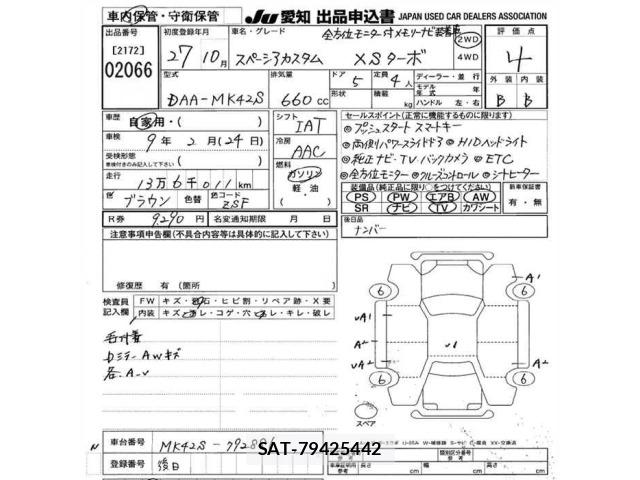 車内保管・守衛保管
JU 愛知 出品申込書 JAPAN USED CAR DEALERS ASSOCIATION
出品番号
[2172]
02066
初度登録年月
27年10月
車名・グレード
全方位モニター付メモリーナビ装着車
スペーシアカスタム XSターボ
2WD
4WD
評価点
4
型式
DAA-MK42S
排気量
660cc
ドア 形状
5
定員 積載
4人
kg
ディーラー・並行
モデル年式 年
ハンドル 左・右
外装 内装
B B
車歴
自家用・( )
車検
9年2月(24日)
受検形態
車検付きのみ記入して下さい
走行
13万6千011km
色
ブラウン
色替
色コード
ZSF
シフト
IAT
冷房
AAC
燃料
ガソリン
軽油
( )
R券 9290円 名変通知期限 月 日
セールスポイント(正常に機能するものに限ります)
◎プッシュスタート スマートキー
◎両側パワースライドドア ◎HIDヘッドライト
◎純正ナビ・TV バックカメラ ◎ETC
◎全方位モニター ◎クルーズコントロール ◎シートヒーター
装備品(純正品に限り○をつけてください)
PS PW エアB AW
SR ナビ TV カワシート
新車保証書
有・無
後日品
ナンバー
注意事項申告欄(不具合内容等は具体的に記入して下さい)
修復歴 有(箇所 )
検査員記入欄
FW キズ・飛石・ヒビ割・リペア跡・X要
内装 キズ・汚レ・コゲ・穴・スレ・キレ・破レ
毛付着
Dミラー AWキズ
各.A-U
6 6 6 6
A¹
UA¹
A²
UA²
A²
スペア
車台番号
MK42S-
登録番号
SAT-79425442
型別区分番号
長さ cm 幅 cm 高さ cm